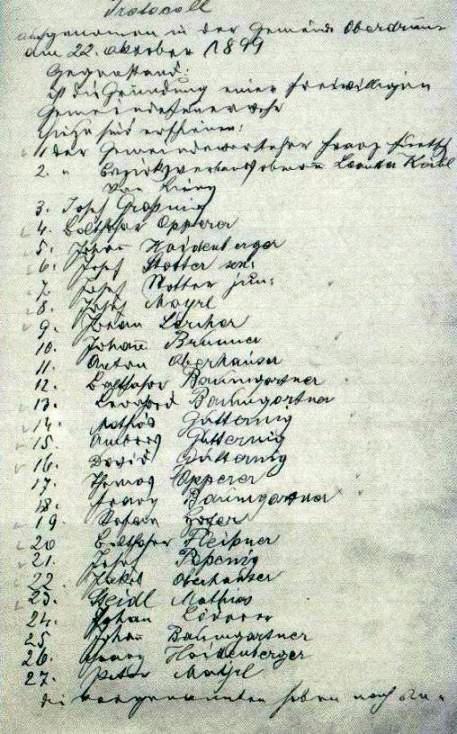 Protocoll
aufgenomen in der Gemeinde Oberdrum
am 22. oktober 1899
Gegenstand:
ist die Gründung einer freiwilligen
Gemeindefeuerwehr
hiezu sind erschienen:
1. der Gemeindevorsteher Franz
2. " Bezirksverbandsobman
von Lienz
3. Josef
4. Balthasar Opperer
5. Johan Haidenberger
6. Josef Stotter sen:
7. Josef Stotter jun:
8. Josef Mayrl
9. Johan Lercher
10. Johann Brunner
11. Anton Oberhauser
12. Balthasar Baumgartner
13. Leonhard Baumgartner
14. Mathias Gutternig
15. Gutternig
16. David Gutternig
17. Thomas Opperer
18. Franz Baumgartner
19.
20. Balthasar
21. Josef
22. Jakob Oberhauser
23. Steidl Mathias
24. Johan
25 Johan Baumgartner
26. Haidenberger
27. Peter Mayrl
die vorgenannten haben nach